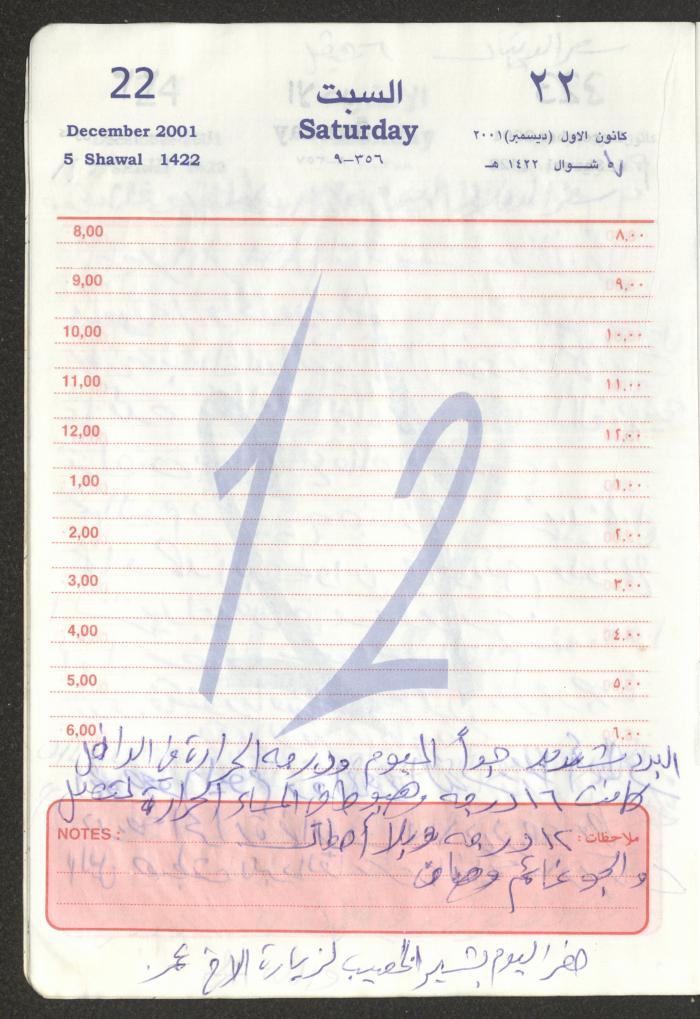 22 السبت ٢٢
December 2001 Saturday كانون الاول (ديسمبر) ٢٠٠١
5 Shawal 1422 ٩-٣٥٦ ٥ شوال ١٤٢٢ هـ
8,00 ٨,٠٠
9,00 ٩,٠٠
10,00 ١٠,٠٠
11,00 ١١,٠٠
12,00 ١٢,٠٠
1,00 ١,٠٠
2,00 ٢,٠٠
3,00 ٣,٠٠
4,00 ٤,٠٠
5,00 ٥,٠٠
6,00 ٦,٠٠
12
البرد شديد جداً اليوم ودرجه الحرارة في الداخل
كانت ١٦ درجه وهبوط في المساء الحرارة لتصل
NOTES: ملاحظات:
١٢ درجه وبلا أمطار
والجو غائم وصاف
حضر اليوم بشير الخصيب لزيارة الاخ عمر